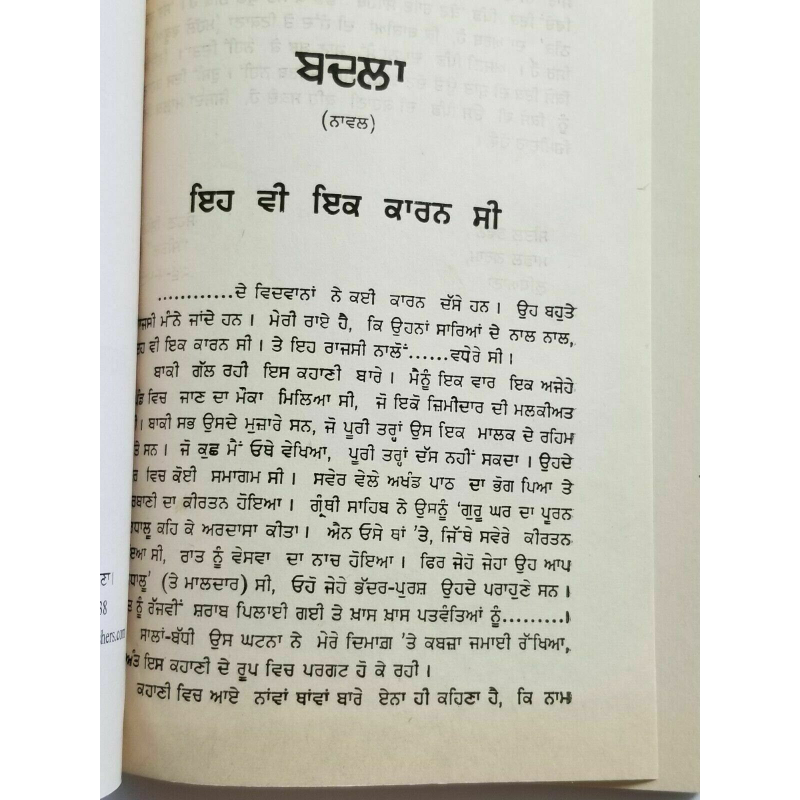 ਬਦਲਾ
(ਨਾਵਲ)
ਇਹ ਵੀ ਇਕ ਕਾਰਨ ਸੀ
............ਦੇ ਵਿਦਵਾਨਾਂ ਨੇ ਕਈ ਕਾਰਨ ਦੱਸੇ ਹਨ। ਉਹ ਬਹੁਤੇ
ਰਾਜਸੀ ਮੰਨੇ ਜਾਂਦੇ ਹਨ। ਮੇਰੀ ਰਾਏ ਹੈ, ਕਿ ਉਹਨਾਂ ਸਾਰਿਆਂ ਦੇ ਨਾਲ ਨਾਲ,
ਇਹ ਵੀ ਇਕ ਕਾਰਨ ਸੀ। ਤੇ ਇਹ ਰਾਜਸੀ ਨਾਲੋਂ......ਵਧੇਰੇ ਸੀ।
ਬਾਕੀ ਗੱਲ ਰਹੀ ਇਸ ਕਹਾਣੀ ਬਾਰੇ। ਮੈਨੂੰ ਇਕ ਵਾਰ ਇਕ ਅਜੇਹੇ
ਵਿਚ ਜਾਣ ਦਾ ਮੌਕਾ ਮਿਲਿਆ ਸੀ, ਜੋ ਇਕੋ ਜ਼ਿਮੀਦਾਰ ਦੀ ਮਲਕੀਅਤ
। ਬਾਕੀ ਸਭ ਉਸਦੇ ਮੁਜ਼ਾਰੇ ਸਨ, ਜੋ ਪੂਰੀ ਤਰ੍ਹਾਂ ਉਸ ਇਕ ਮਾਲਕ ਦੇ ਰਹਿਮ
ਤੇ ਸਨ। ਜੋ ਕੁਛ ਮੈਂ ਓਥੇ ਵੇਖਿਆ, ਪੂਰੀ ਤਰ੍ਹਾਂ ਦੱਸ ਨਹੀਂ ਸਕਦਾ। ਉਹਦੇ
ਵਿਚ ਕੋਈ ਸਮਾਗਮ ਸੀ। ਸਵੇਰ ਵੇਲੇ ਅਖੰਡ ਪਾਠ ਦਾ ਭੋਗ ਪਿਆ ਤੇ
ਦਾ ਕੀਰਤਨ ਹੋਇਆ। ਗ੍ਰੰਥੀ ਸਾਹਿਬ ਨੇ ਉਸਨੂੰ 'ਗੁਰੂ ਘਰ ਦਾ ਪੂਰਨ
ਕਹਿ ਕੇ ਅਰਦਾਸਾ ਕੀਤਾ। ਐਨ ਓਸੇ ਥਾਂ 'ਤੇ, ਜਿੱਥੇ ਸਵੇਰੇ ਕੀਰਤਨ
ਸੀ, ਰਾਤ ਨੂੰ ਵੇਸਵਾ ਦਾ ਨਾਚ ਹੋਇਆ। ਫਿਰ ਜੇਹੋ ਜੇਹਾ ਉਹ ਆਪ
(ਤੇ ਮਾਲਦਾਰ) ਸੀ, ਓਹੋ ਜੇਹੇ ਭੱਦਰ-ਪੁਰਸ਼ ਉਹਦੇ ਪਰਾਹੁਣੇ ਸਨ।
ਨੂੰ ਰੱਜਵੀਂ ਸ਼ਰਾਬ ਪਿਲਾਈ ਗਈ ਤੇ ਖ਼ਾਸ ਖ਼ਾਸ ਪਤਵੰਤਿਆਂ ਨੂੰ.........।
ਸਾਲਾਂ-ਬੱਧੀ ਉਸ ਘਟਨਾ ਨੇ ਮੇਰੇ ਦਿਮਾਗ਼ 'ਤੇ ਕਬਜ਼ਾ ਜਮਾਈ ਰੱਖਿਆ,
ਅੰਤ ਇਸ ਕਹਾਣੀ ਦੇ ਰੂਪ ਵਿਚ ਪਰਗਟ ਹੋ ਕੇ ਰਹੀ।
ਕਹਾਣੀ ਵਿਚ ਆਏ ਨਾਂਵਾਂ ਥਾਂਵਾਂ ਬਾਰੇ ਏਨਾ ਹੀ ਕਹਿਣਾ ਹੈ, ਕਿ ਨਾਮ